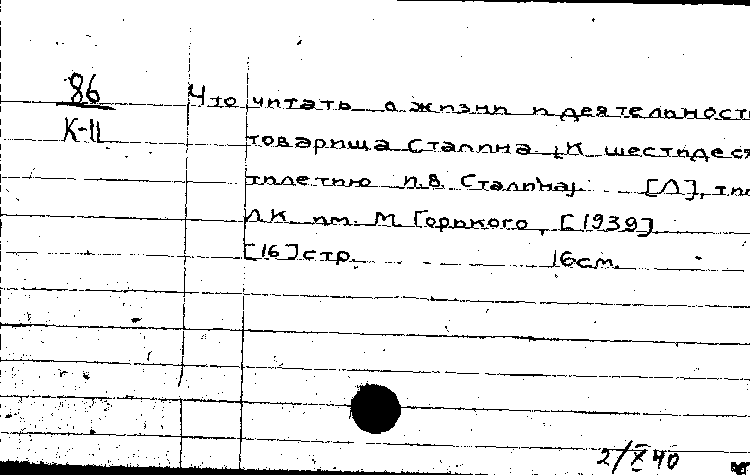 86
К-11
Что читать о жизни и деятельност
товарища Сталина [К шестидеся
тилетию И.В. Сталина]. [Л], тип
ЛК им. М. Горького, [1939]
[16] стр. 16 см.
2/X 40